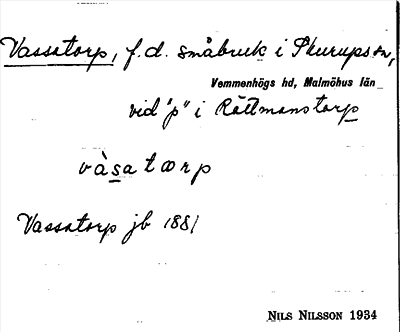 Vassatorp, f.d. småbruk i Skurups sn,
Vemmenhögs hd, Malmöhus län
vid "p" i Rättmanstorp
vàsatorp
Vassatorp jb 1881
NILS NILSSON 1934